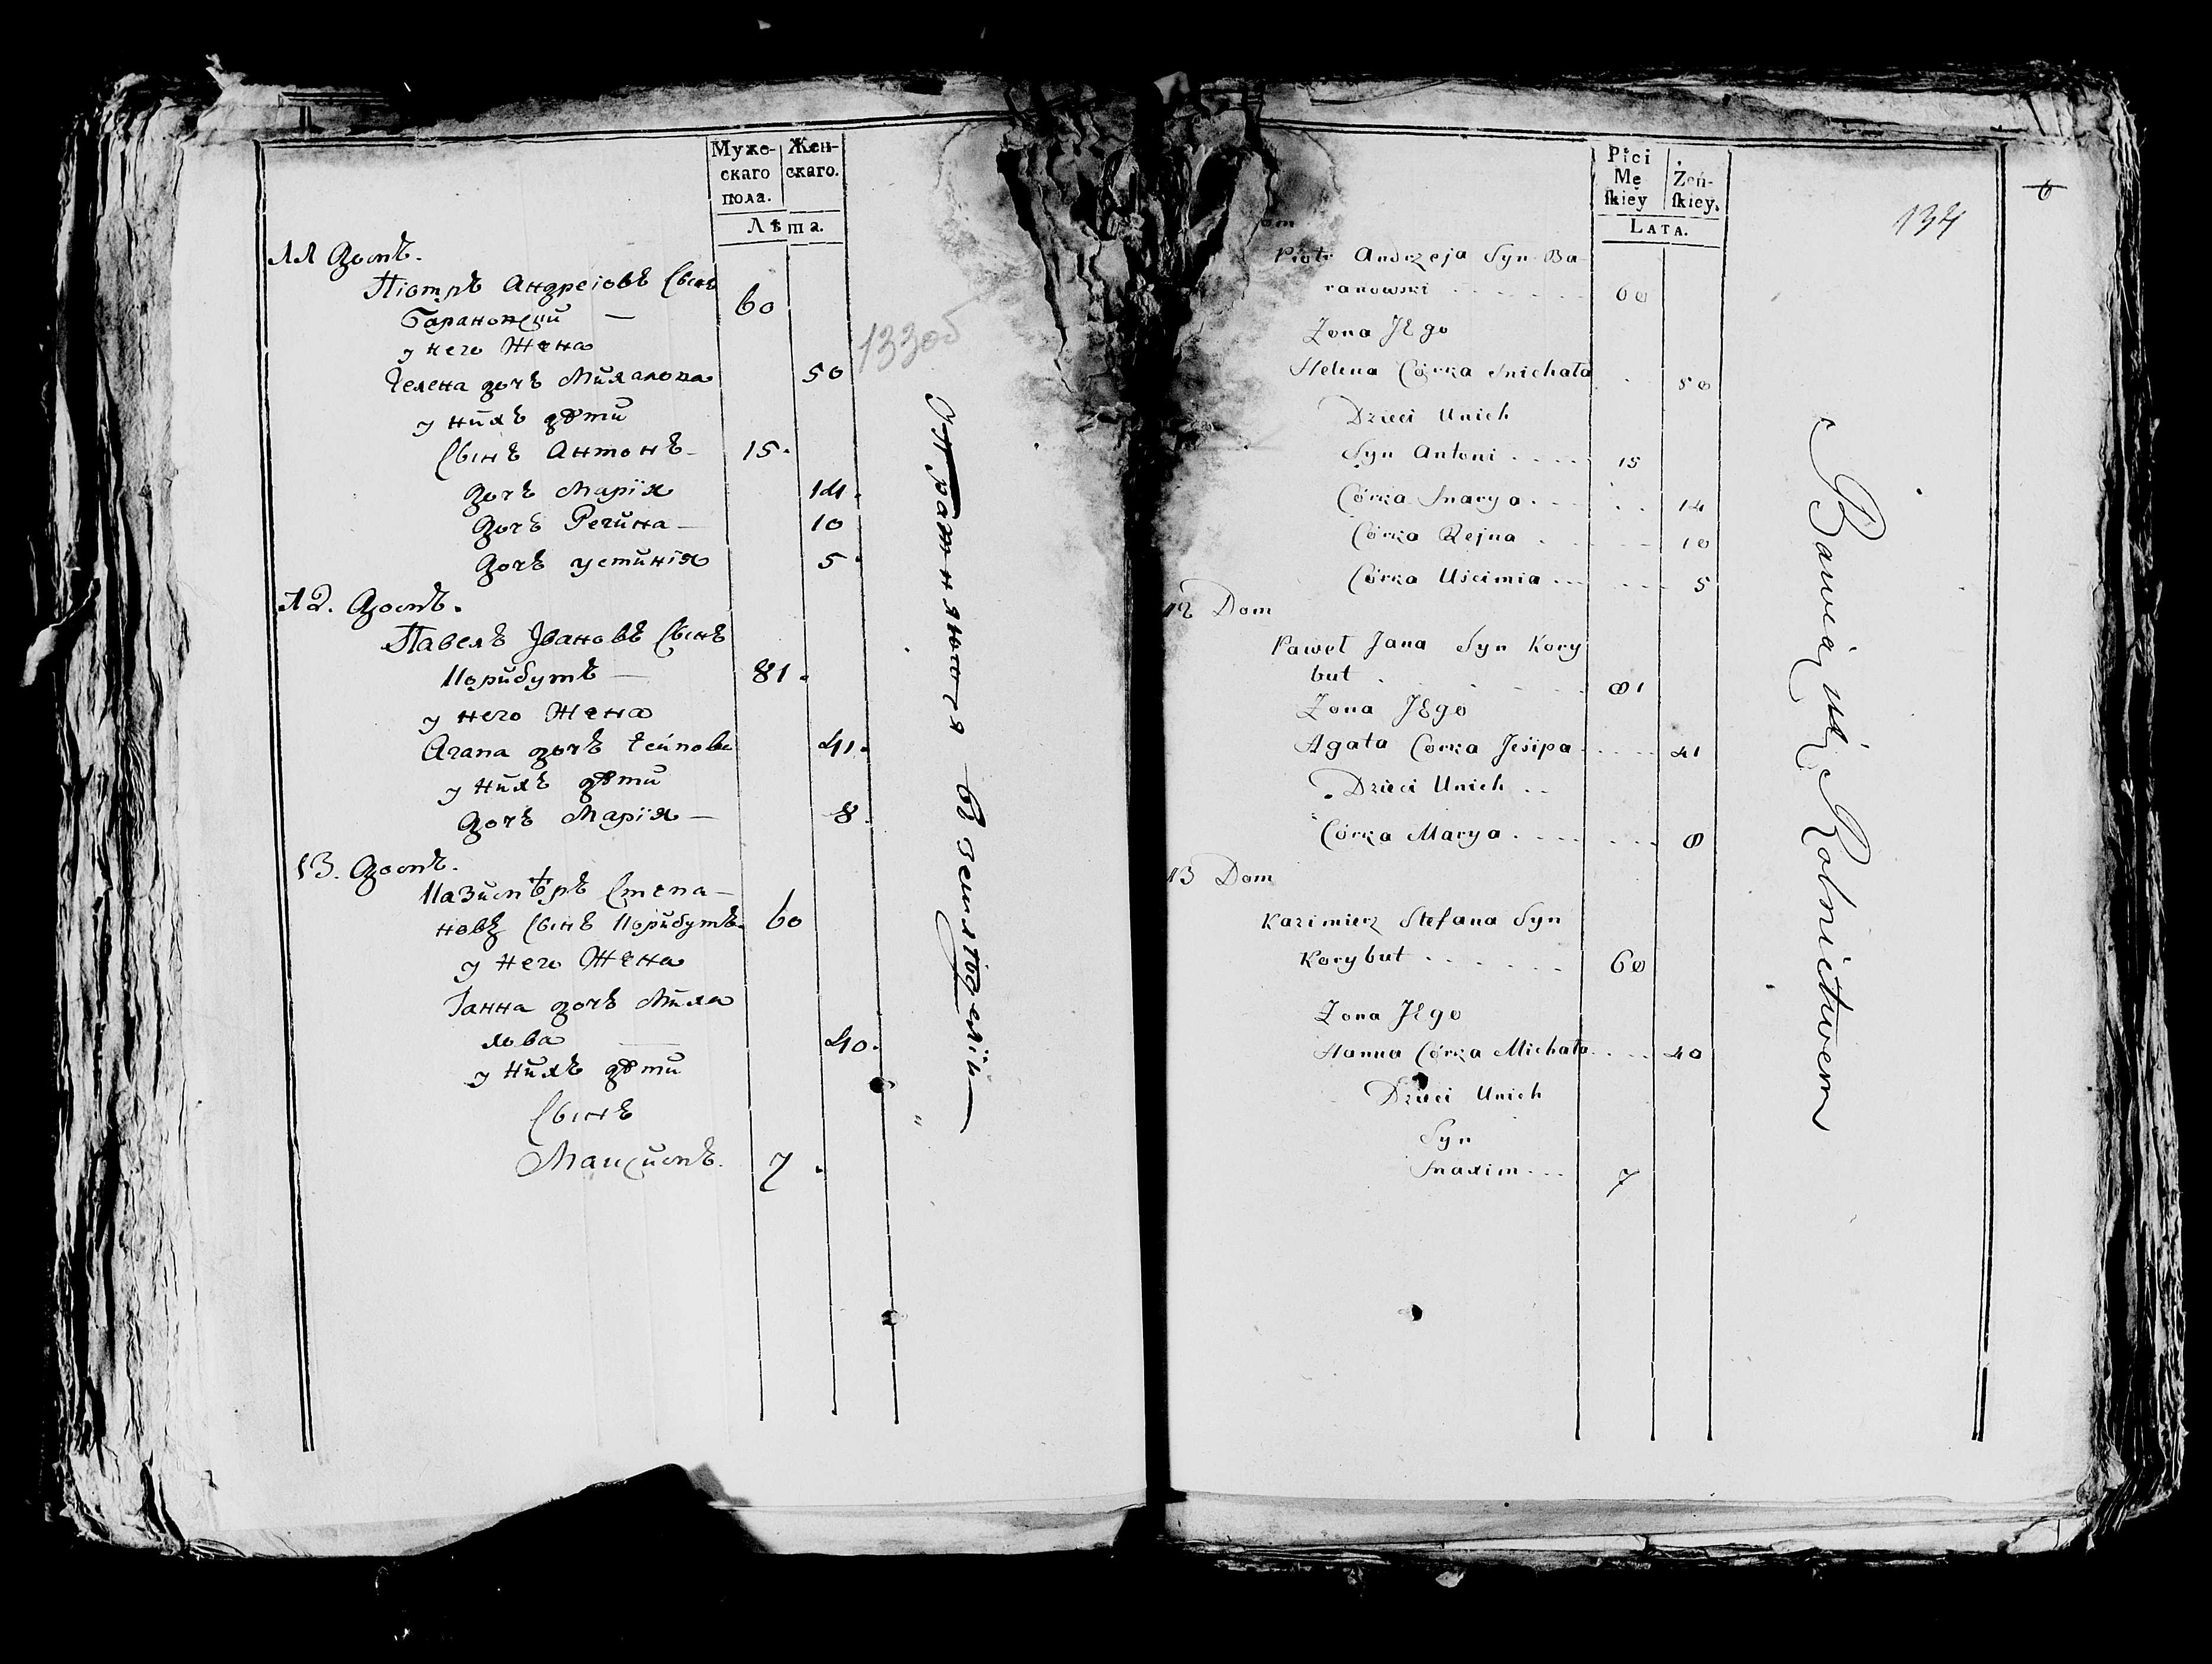 Муже-
скаго
пола.
Жен-
скаго.
Лѣта.
11 Домъ.
Піотръ Андреіовъ Сынъ
Барановскій — 60
у него Жена
Гелена дочъ Михалова 50
у нихъ дѣти
Сынъ Антонъ 15.
дочъ Марія 14.
дочъ Регина — 10
дочъ устинія 5.
12. Домъ.
Павелъ Івановъ Сынъ
Корибутъ — 81.
у него Жена
Агапа дочъ 41.
у нихъ дѣти
дочъ Марія — 8.
13. Домъ.
Казимѣръ Степа-
новъ Сынъ Корибутъ. 60
у него Жена
Ганна дочъ Миха
лова 40.
у нихъ дѣти
Сынъ
Максимъ. 7.
133об
въ земледеліи
Płci
Mę
ſkiey
Żeń-
ſkiey.
LATA.
134
6
om
Piotr Andrzeja Syn Ba-
ranowski . . . . . . 60
Zona JEgo
Helena Córka Michała . . 50
Dzieci Unich
Syn Antoni . . . . 15
Córka Marya . . . . . 14
Córka Rejna . . . . 10
Córka Uścimia . . . . . 5
12 Dom
Paweł Jana Syn Kory
but . . . . 81
Zona JEgo
Agata Corka Jesipa . . . . 41
Dzieci Unich . .
Córka Marya . . . . . . . 8
13 Dom
Kazimierz Stefana Syn
Korybut . . . . . . 60
Zona JEgo
Hanna Córka Michała . . . . 40
Dzieci Unich
Syn
Maxim . . . 7
Bawią się Rolnictwem